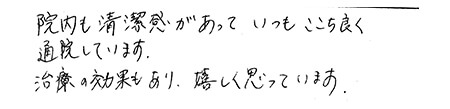 院内も清潔感があって いつも ここち良く
通院しています.
治療の効果もあり、嬉しく思っています.